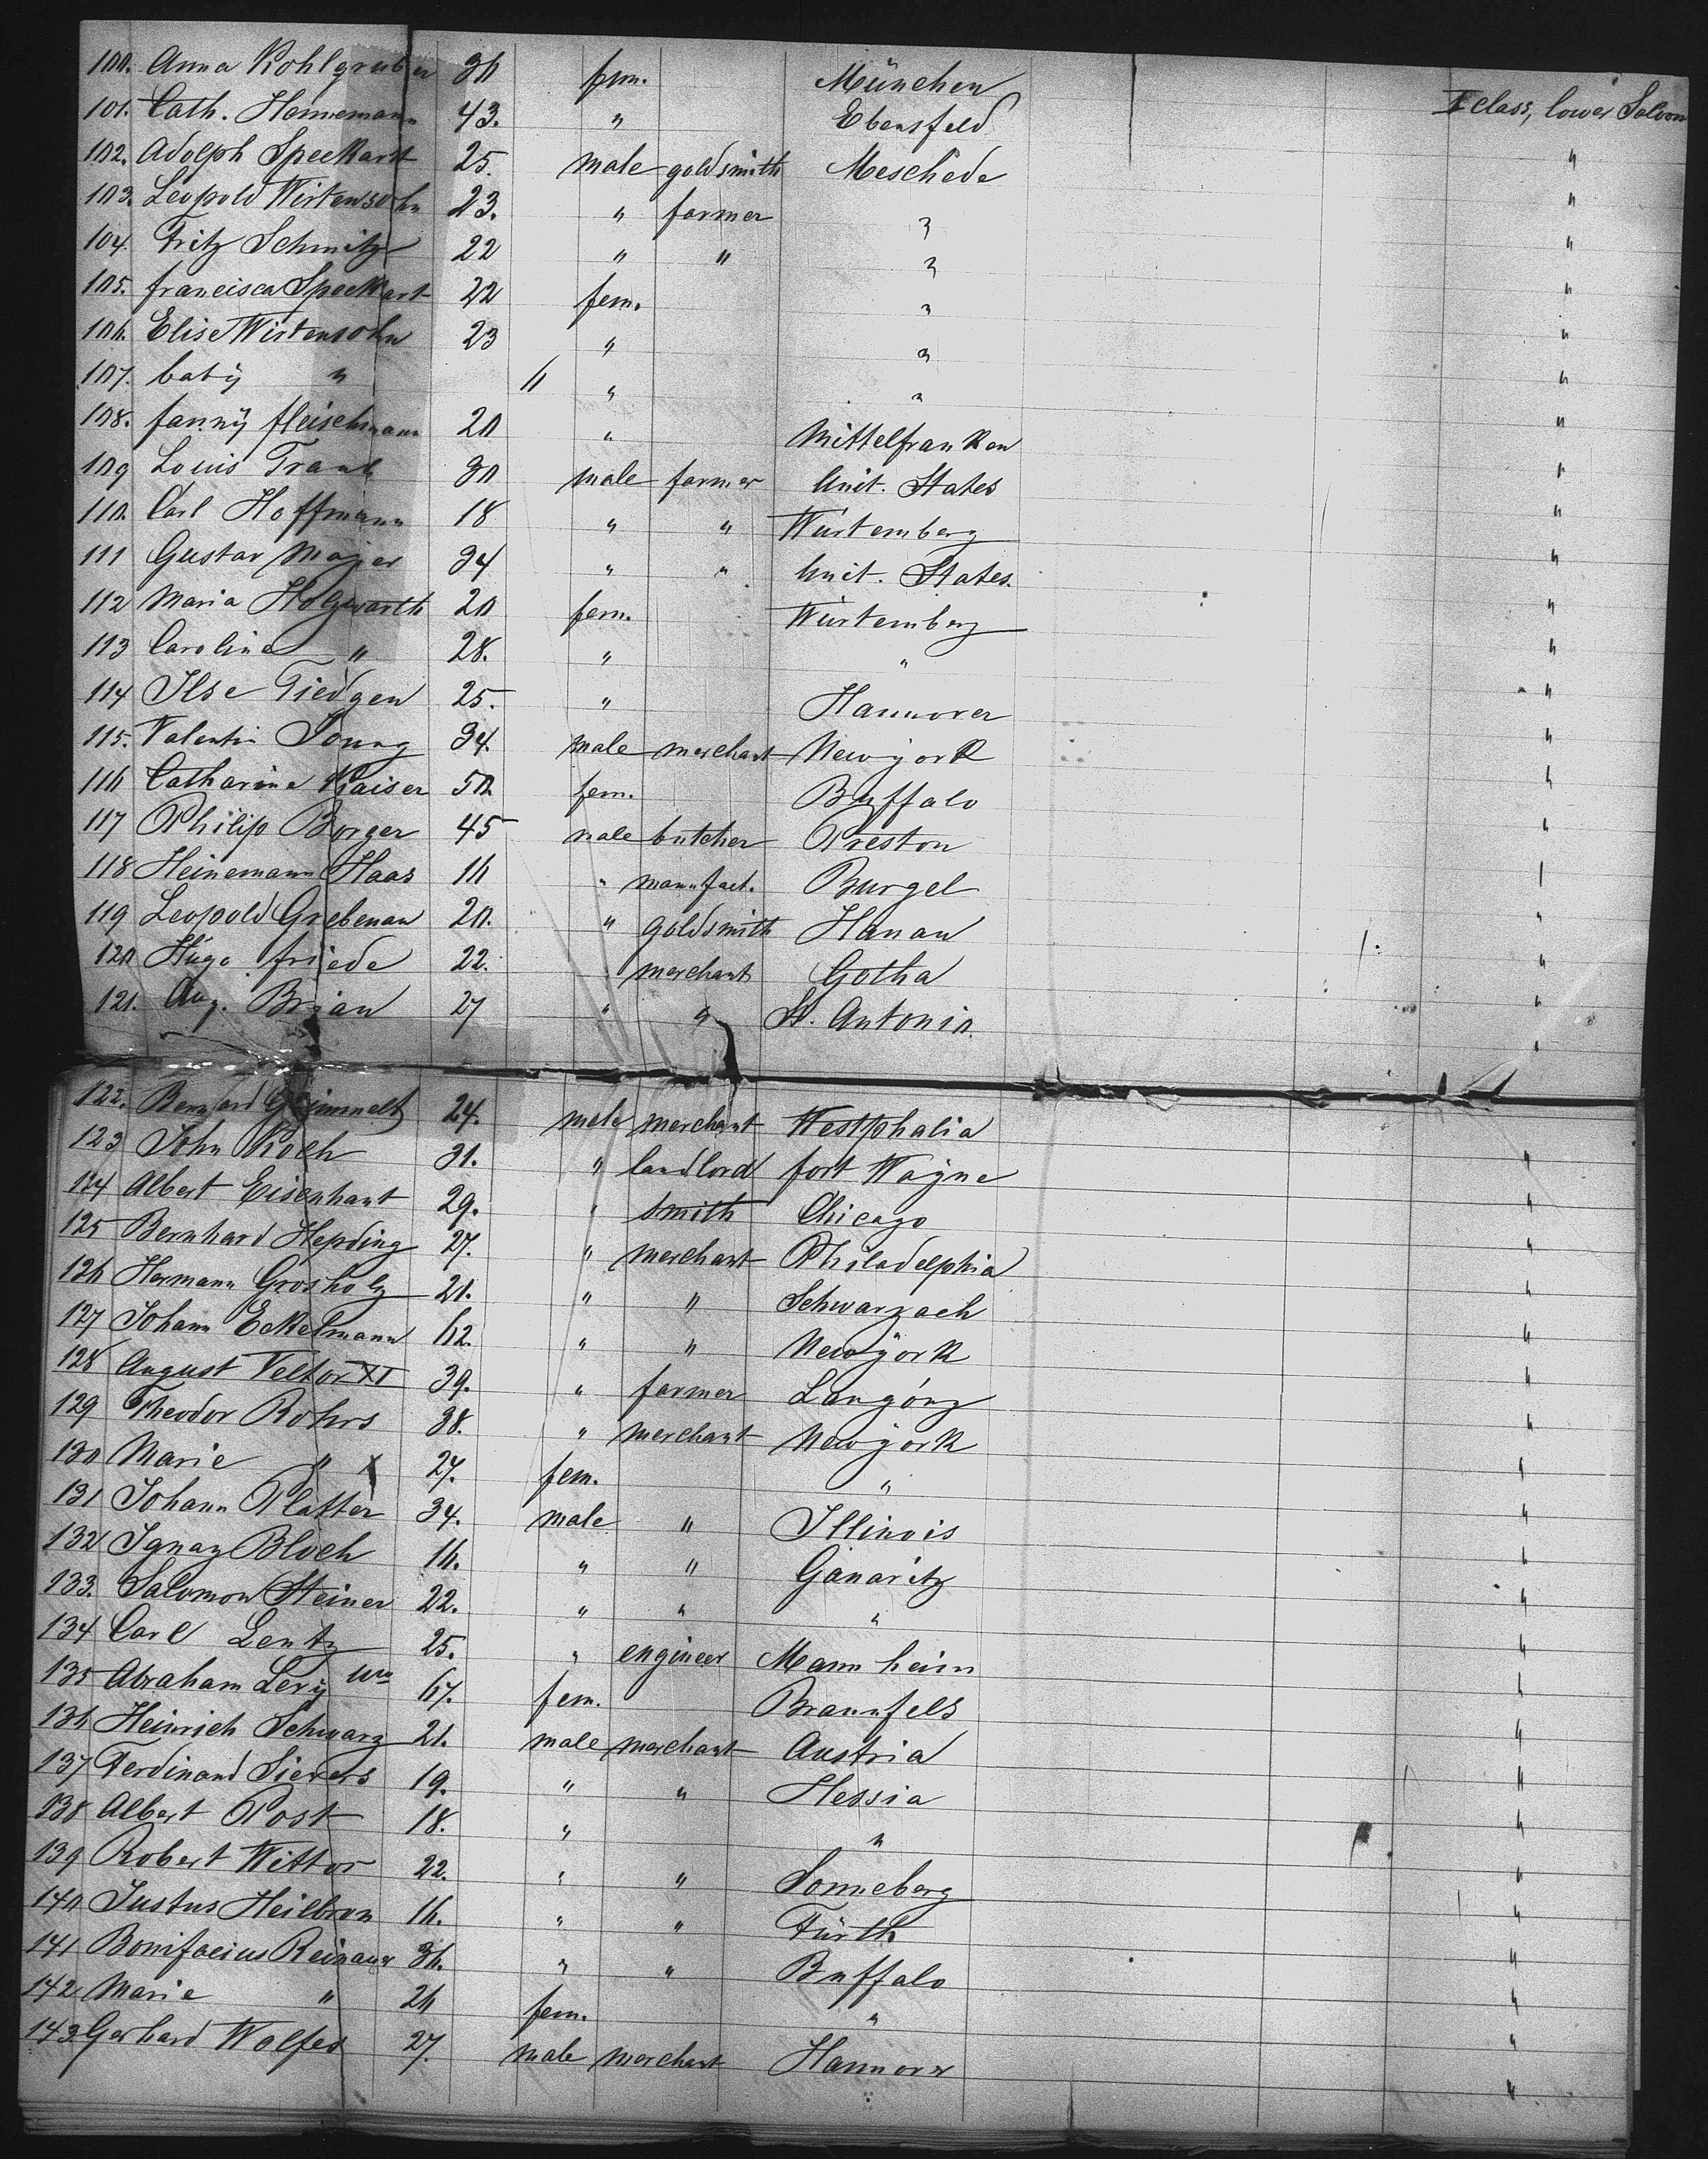 100. Anna Kohlgruber 36 fem. München I class, lower Saloon
101. Cath. Hennemann 43. " Ebensfeld "
102. Adolph Speckart 25. male goldsmith Meschede "
103. Leopold Wirtensohn 23. " farmer " "
104. Fritz Schmitz 22 " " " "
105. francisca Speckart 22 fem. " "
106. Elise Wirtensohn 23 " " "
107. baby " 6 " " "
108. fanny fleischmann 20 " Mittelfranken "
109 Louis Traub 30 male farmer Unit. States "
110. Carl Hoffmann 18 " " Würtemberg "
111 Gustav Majer 34 " " Unit. States. "
112 Maria Holzwarth 20 fem. Würtemberg "
113 Caroline " 28. " " "
114 Ilse Tiedgen 25. " Hannover "
115. Valentin Young 34. male merchant Newyork "
116 Catharine Kaiser 50. fem. Buffalo "
117 Philip Borger 45 male butcher Preston "
118 Heinemann Haas 16 " manufact. Burgel "
119 Leopold Grebenau 20. " goldsmith Hanau "
120 Hugo friede 22. " merchant Gotha "
121. Aug. Brjan 27 " " St. Antonio. "
122. Bernard 24. male merchant Westphalia "
123 John Koch 31. " landlord fort Wayne "
124 Albert Eisenhaut 29. " smith Chicago "
125 Bernhard Hepding 27. " merchant Philadelphia "
126 Hermann Grosholz 21. " " Schwarzach "
127 Johann Eckelmann 62. " " Newyork "
128 August Veltor XI 39. " farmer Langönz "
129 Theodor Rohrs 38. " merchant Newyork "
130 Marie " X 27. fem. " "
131 Johann Platter 34. male " Illinois "
132 Ignaz Bloch 16. " " Ganaritz "
133. Salomon Steiner 22. " " " "
134 Carl Lentz 25. " engineer Mannheim "
135 Abraham Levy Wwe 67. fem. Braunfels "
136 Heinrich Schwarz 21. male merchant Austria "
137 Ferdinand Sievers 19. " " Hessia "
138 Albert Post 18. " " "
139 Robert Wittor 22. " " Sonneberg "
140 Justus Heilbron 16. " " Fürth "
141 Bonifacius Reinaur 36. " " Buffalo "
142 Marie " 26 fem. " "
143. Gerhard Wolfes 27. male merchant Hannover "